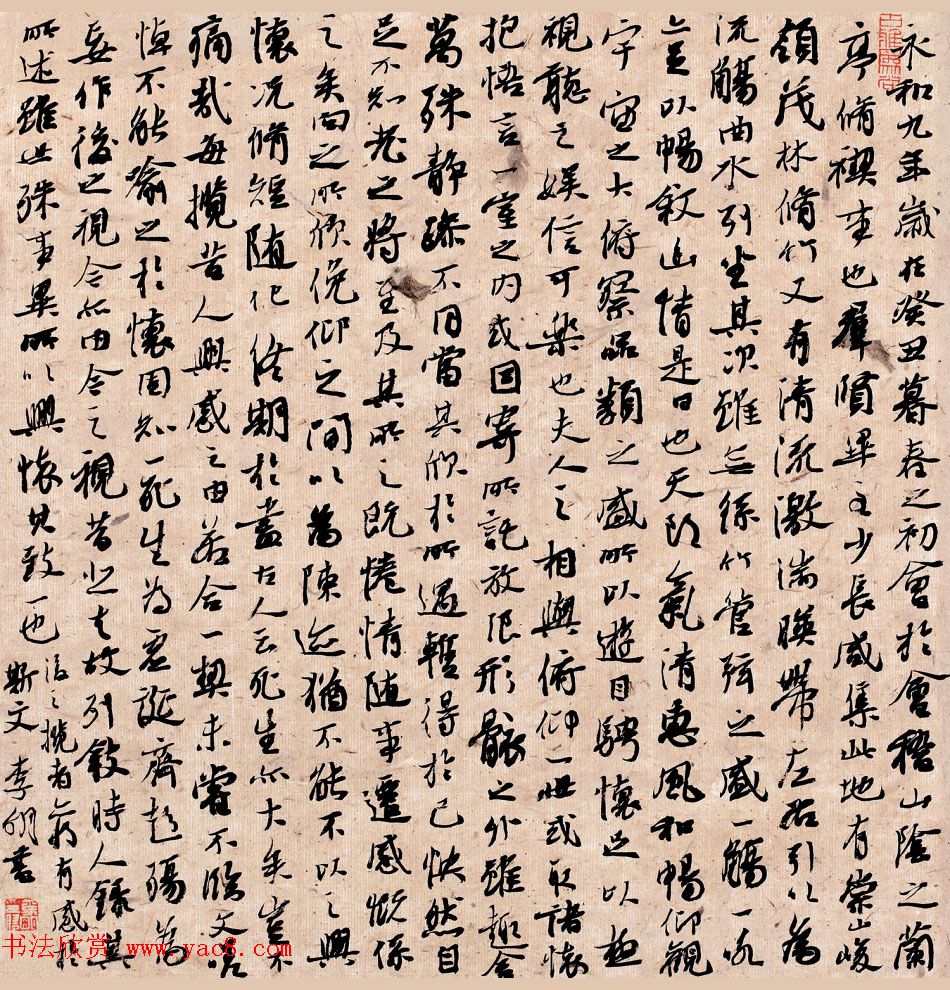 永和九年歲在癸丑暮春之初會於會稽山陰之蘭
亭脩禊事也羣賢畢至少長咸集此地有崇山峻
領茂林脩竹又有清流激湍暎帶左右引以為
流觴曲水列坐其次雖無絲竹管弦之盛一觴一詠
亦足以暢敘幽情是日也天朗氣清惠風和暢仰觀
宇宙之大俯察品類之盛所以遊目騁懷足以極
視聽之娛信可樂也夫人之相與俯仰一世或取諸懷
抱悟言一室之內或因寄所託放浪形骸之外雖趣舍
萬殊靜躁不同當其欣於所遇暫得於己快然自
足不知老之將至及其所之既惓情隨事遷感慨係
之矣向之所欣俛仰之間以為陳迹猶不能不以之興
懷況脩短隨化終期於盡古人云死生亦大矣豈不
痛哉每攬昔人興感之由若合一契未嘗不臨文嗟
悼不能喻之於懷固知一死生為虛誕齊彭殤為
妄作後之視今亦由今之視昔悲夫故列敘時人錄其
所述雖世殊事異所以興懷其致一也
後之攬者亦將有感於
斯文 李明書
书法欣赏 www.yac8.com